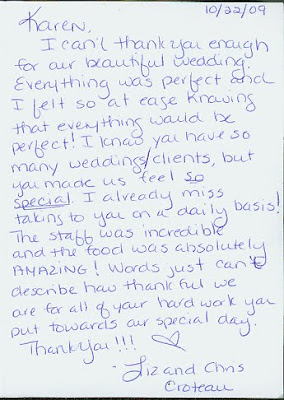 10/22/09
Karen,
I can't thank you enough
for our beautiful wedding.
Everything was perfect and
I felt so at ease knowing
that everything would be
perfect! I know you have so
many weddings/clients, but
you made us feel so
special. I already miss
talking to you on a daily basis!
The staff was incredible
and the food was absolutely
AMAZING! Words just can't
describe how thankful we
are for all of your hard work you
put towards our special day.
Thank you!!! ♡
- Liz and Chris
Croteau